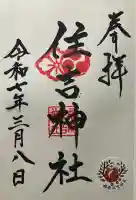 奉拝
住吉神社
令和七年三月八日